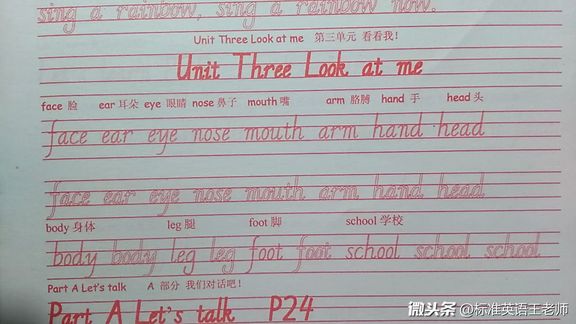 sing a rainbow, sing a rainbow now.
Unit Three Look at me 第三单元 看看我！
Unit Three Look at me
face 脸 ear 耳朵 eye 眼睛 nose 鼻子 mouth 嘴 arm 胳膊 hand 手 head 头
face ear eye nose mouth arm hand head
face ear eye nose mouth arm hand head
body 身体 leg 腿 foot 脚 school 学校
body body leg leg foot foot school school school
Part A Let's talk A 部分 我们对话吧！
Part A Let's talk P24
微头条 @标准英语王老师